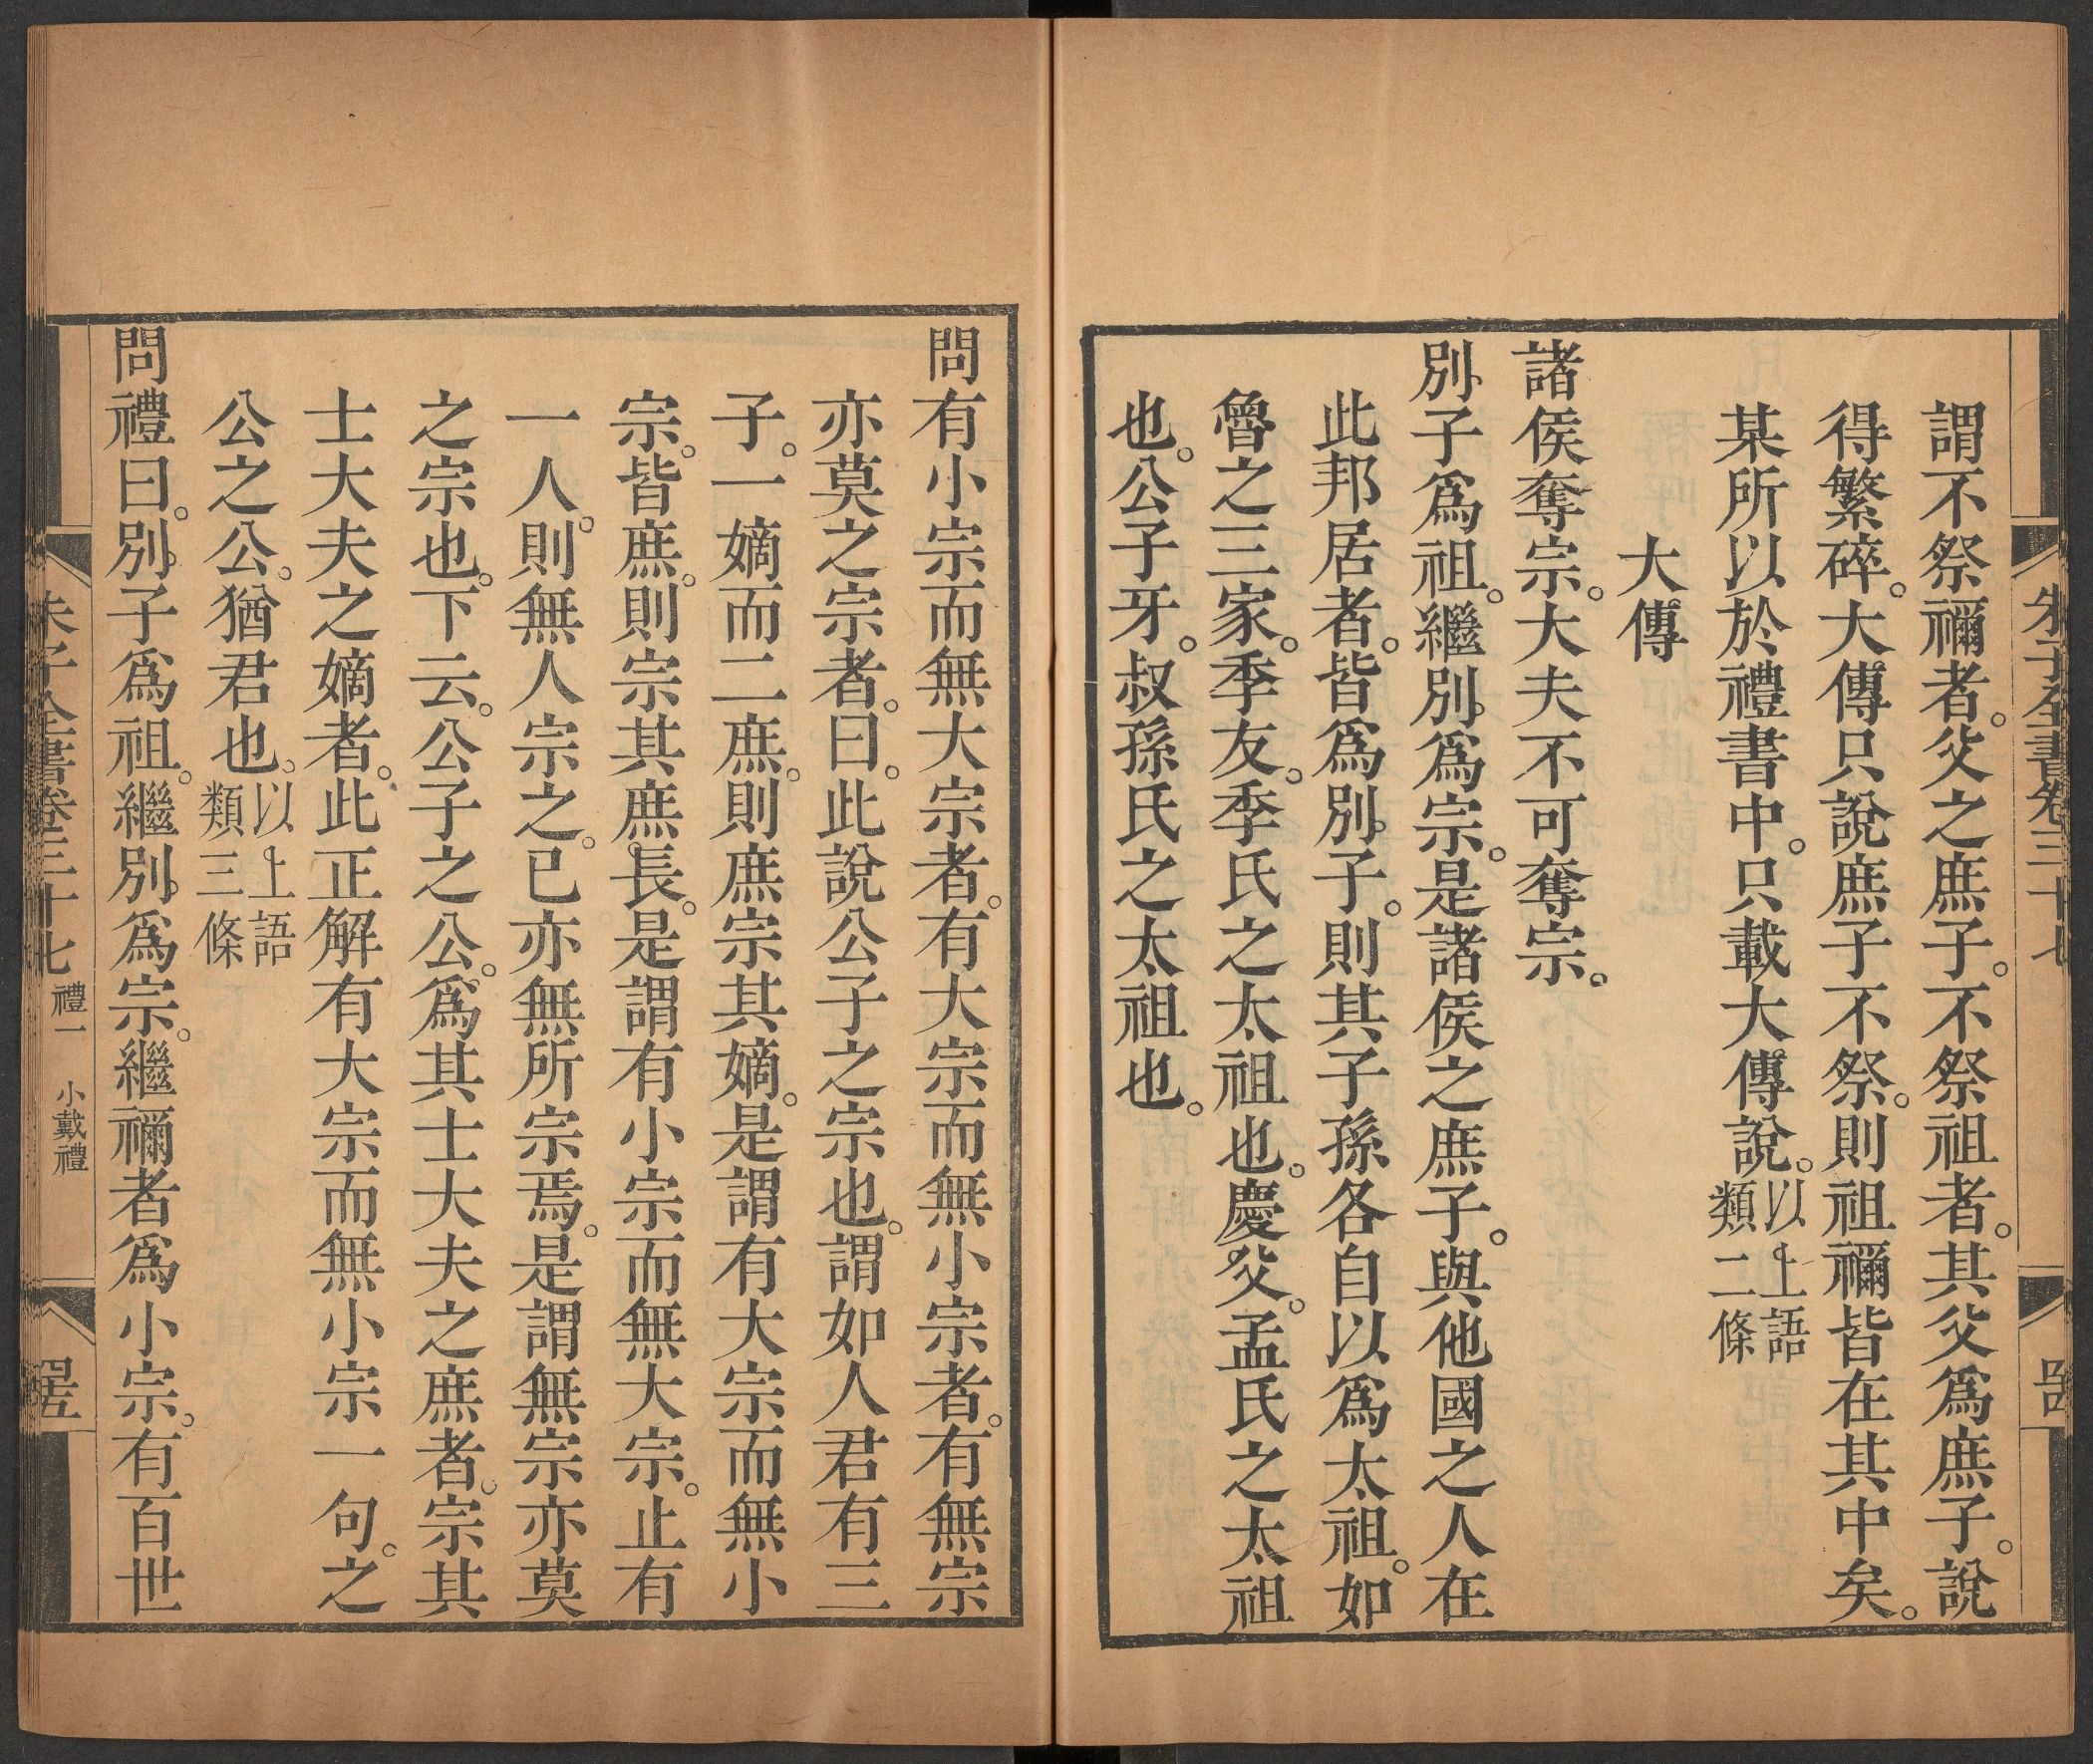 謂不祭禰者。父之庶子。不祭祖者。其父爲庶子。說
得繁碎。大傳只說庶子不祭。則祖禰皆在其中矣。
某所以於禮書中。只載大傳說。以上語類二條
大傳
諸侯奪宗。大夫不可奪宗。
別子爲祖。繼別爲宗。是諸侯之庶子。與他國之人在
此邦居者。皆爲別子。則其子孫各自以爲太祖。如
魯之三家。季友。季氏之太祖也。慶父。孟氏之太祖
也。公子牙。叔孫氏之太祖也。
問有小宗而無大宗者。有大宗而無小宗者。有無宗
亦莫之宗者。曰。此說公子之宗也。謂如人君有三
子。一嫡而二庶。則庶宗其嫡。是謂有大宗而無小
宗。皆庶。則宗其庶長。是謂有小宗而無大宗。止有
一人。則無人宗之。已亦無所宗焉。是謂無宗亦莫
之宗也。下云。公子之公。爲其士大夫之庶者。宗其
士大夫之嫡者。此正解有大宗而無小宗一句。之
公之公。猶君也。以上語類三條
問禮曰。別子爲祖。繼別爲宗。繼禰者爲小宗。有百世
朱子全書卷三十七 禮一 小戴禮